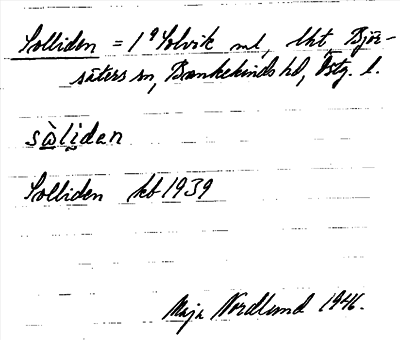 Solliden = 1° Solvik ml, lht, Björ-
säters sn, Bankekinds hd, Östg. l.
sòliden
Solliden kb 1939
Maja Nordlund 1946.